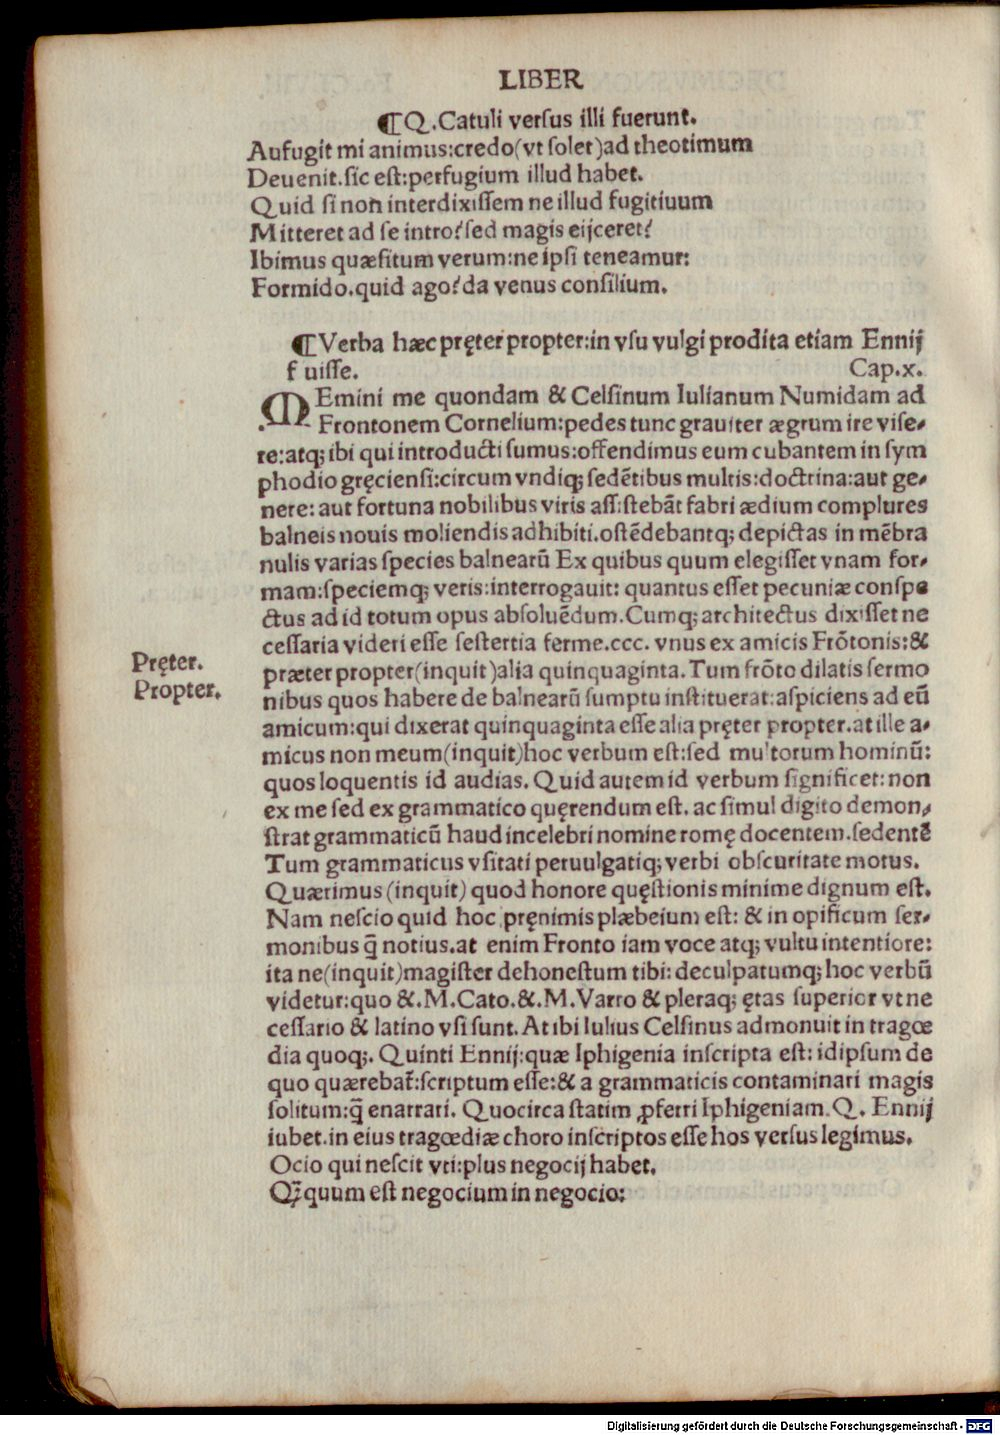 LIBER
¶Q.Catuli versus illi fuerunt.
Aufugit mi animus:credo(vt solet)ad theotimum
Deuenit.sic est:perfugium illud habet.
Quid si non interdixissem ne illud fugitiuum
Mitteret ad se intro?sed magis eijceret?
Ibimus quæsitum verum:ne ipsi teneamur:
Formido.quid ago?da venus consilium.
¶Verba hæc pręter propter:in vsu vulgi prodita etiam Ennij
fuisse. Cap.x.
MEmini me quondam & Celsinum Iulianum Numidam ad
Frontonem Cornelium:pedes tunc grauiter ægrum ire vise⸗
re:atq; ibi qui introducti sumus:offendimus eum cubantem in sym
phodio gręciensi:circum vndiq; sedētibus multis:doctrina:aut ge⸗
nere: aut fortuna nobilibus viris assistebāt fabri ædium complures
balneis nouis moliendis adhibiti.ostēdebantq; depictas in mēbra
nulis varias species balnearū Ex quibus quum elegisset vnam for⸗
mam:speciemq; veris:interrogauit: quantus esset pecuniæ conspe
ctus ad id totum opus absoluēdum.Cumq; architectus dixisset ne
cessaria videri esse sestertia ferme.ccc. vnus ex amicis Frōtonis:&
præter propter(inquit)alia quinquaginta.Tum frōto dilatis sermo
nibus quos habere de balnearū sumptu instituerat:aspiciens ad eū
amicum:qui dixerat quinquaginta esse alia pręter propter.at ille a⸗
micus non meum(inquit)hoc verbum est:sed multorum hominū:
quos loquentis id audias. Quid autem id verbum significet: non
ex me sed ex grammatico quęrendum est. ac simul digito demon⸗
strat grammaticū haud incelebri nomine romę docentem.sedentē
Tum grammaticus vsitati peruulgatiq; verbi obscuritate motus.
Quærimus (inquit) quod honore quęstionis minime dignum est.
Nam nescio quid hoc pręnimis plæbeium est: & in opificum ser⸗
monibus q̄ notius.at enim Fronto iam voce atq; vultu intentiore:
ita ne(inquit)magister dehonestum tibi: deculpatumq; hoc verbū
videtur:quo &.M.Cato.&.M.Varro & pleraq; ętas superior vt ne
cessario & latino vsi sunt. At ibi Iulius Celsinus admonuit in tragœ
dia quoq;. Quinti Ennij:quæ Iphigenia inscripta est: idipsum de
quo quærebat̄:scriptum esse:& a grammaticis contaminari magis
solitum:q̄ enarrari. Quocirca statim ꝓferri Iphigeniam.Q. Ennij
iubet.in eius tragœdiæ choro inscriptos esse hos versus legimus.
Ocio qui nescit vti:plus negocij habet.
Qꝫquum est negocium in negocio:
Pręter.
Propter.
Digitalisierung gefördert durch die Deutsche Forschungsgemeinschaft - DFG